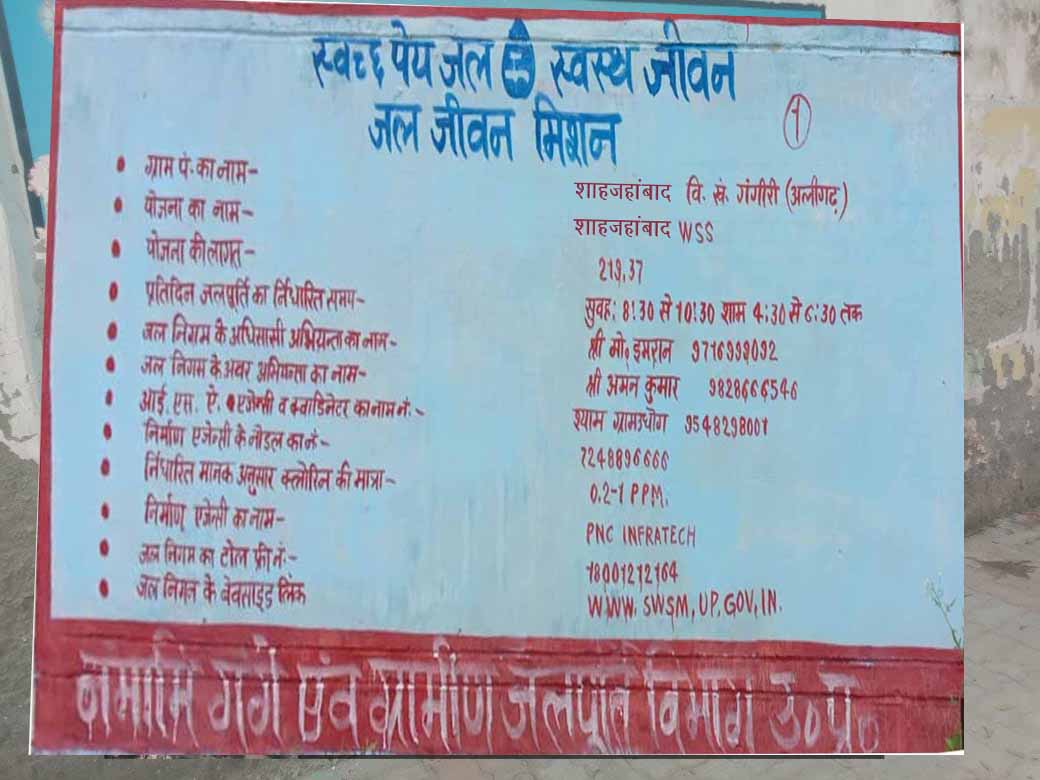 स्वच्छ पेय जल स्वस्थ जीवन
जल जीवन मिशन
1
ग्राम पं. का नाम- शाहजहांबाद वि. खं. गंगीरी (अलीगढ़)
योजना का नाम- शाहजहांबाद WSS
योजना की लागत- 219,37
प्रतिदिन जलपूर्ति का र्निधारित समय- सुवह: 8:30 से 10:30 शाम 4:30 से 6:30 तक
जल निगम के अधिसासी अभियन्ता का नाम- श्री मो॰ इमरान 9716999092
जल निगम के अवर अभियन्ता का नाम- श्री अमन कुमार 9828666546
आई. एस. ऐ. एजेन्सी व क्वाडिनेटर का नाम नं.- श्याम ग्रामउधोग 9548298001
निर्माण एजेन्सी के नोडल का नं- 7248896666
र्निधारित मानक अनुसार क्लोरिन की मात्रा- 0.2-1 PPM.
निर्माण एजेन्सी का नाम- PNC INFRATECH
जल निगम का टोल फ्री नं.- 18001212164
जल निगम के वेवसाइड लिंक WWW. SWSM, UP, GOV, IN.
नमामि गंगे एंव ग्रामीण जलपूर्ति विभाग उ०प्र०